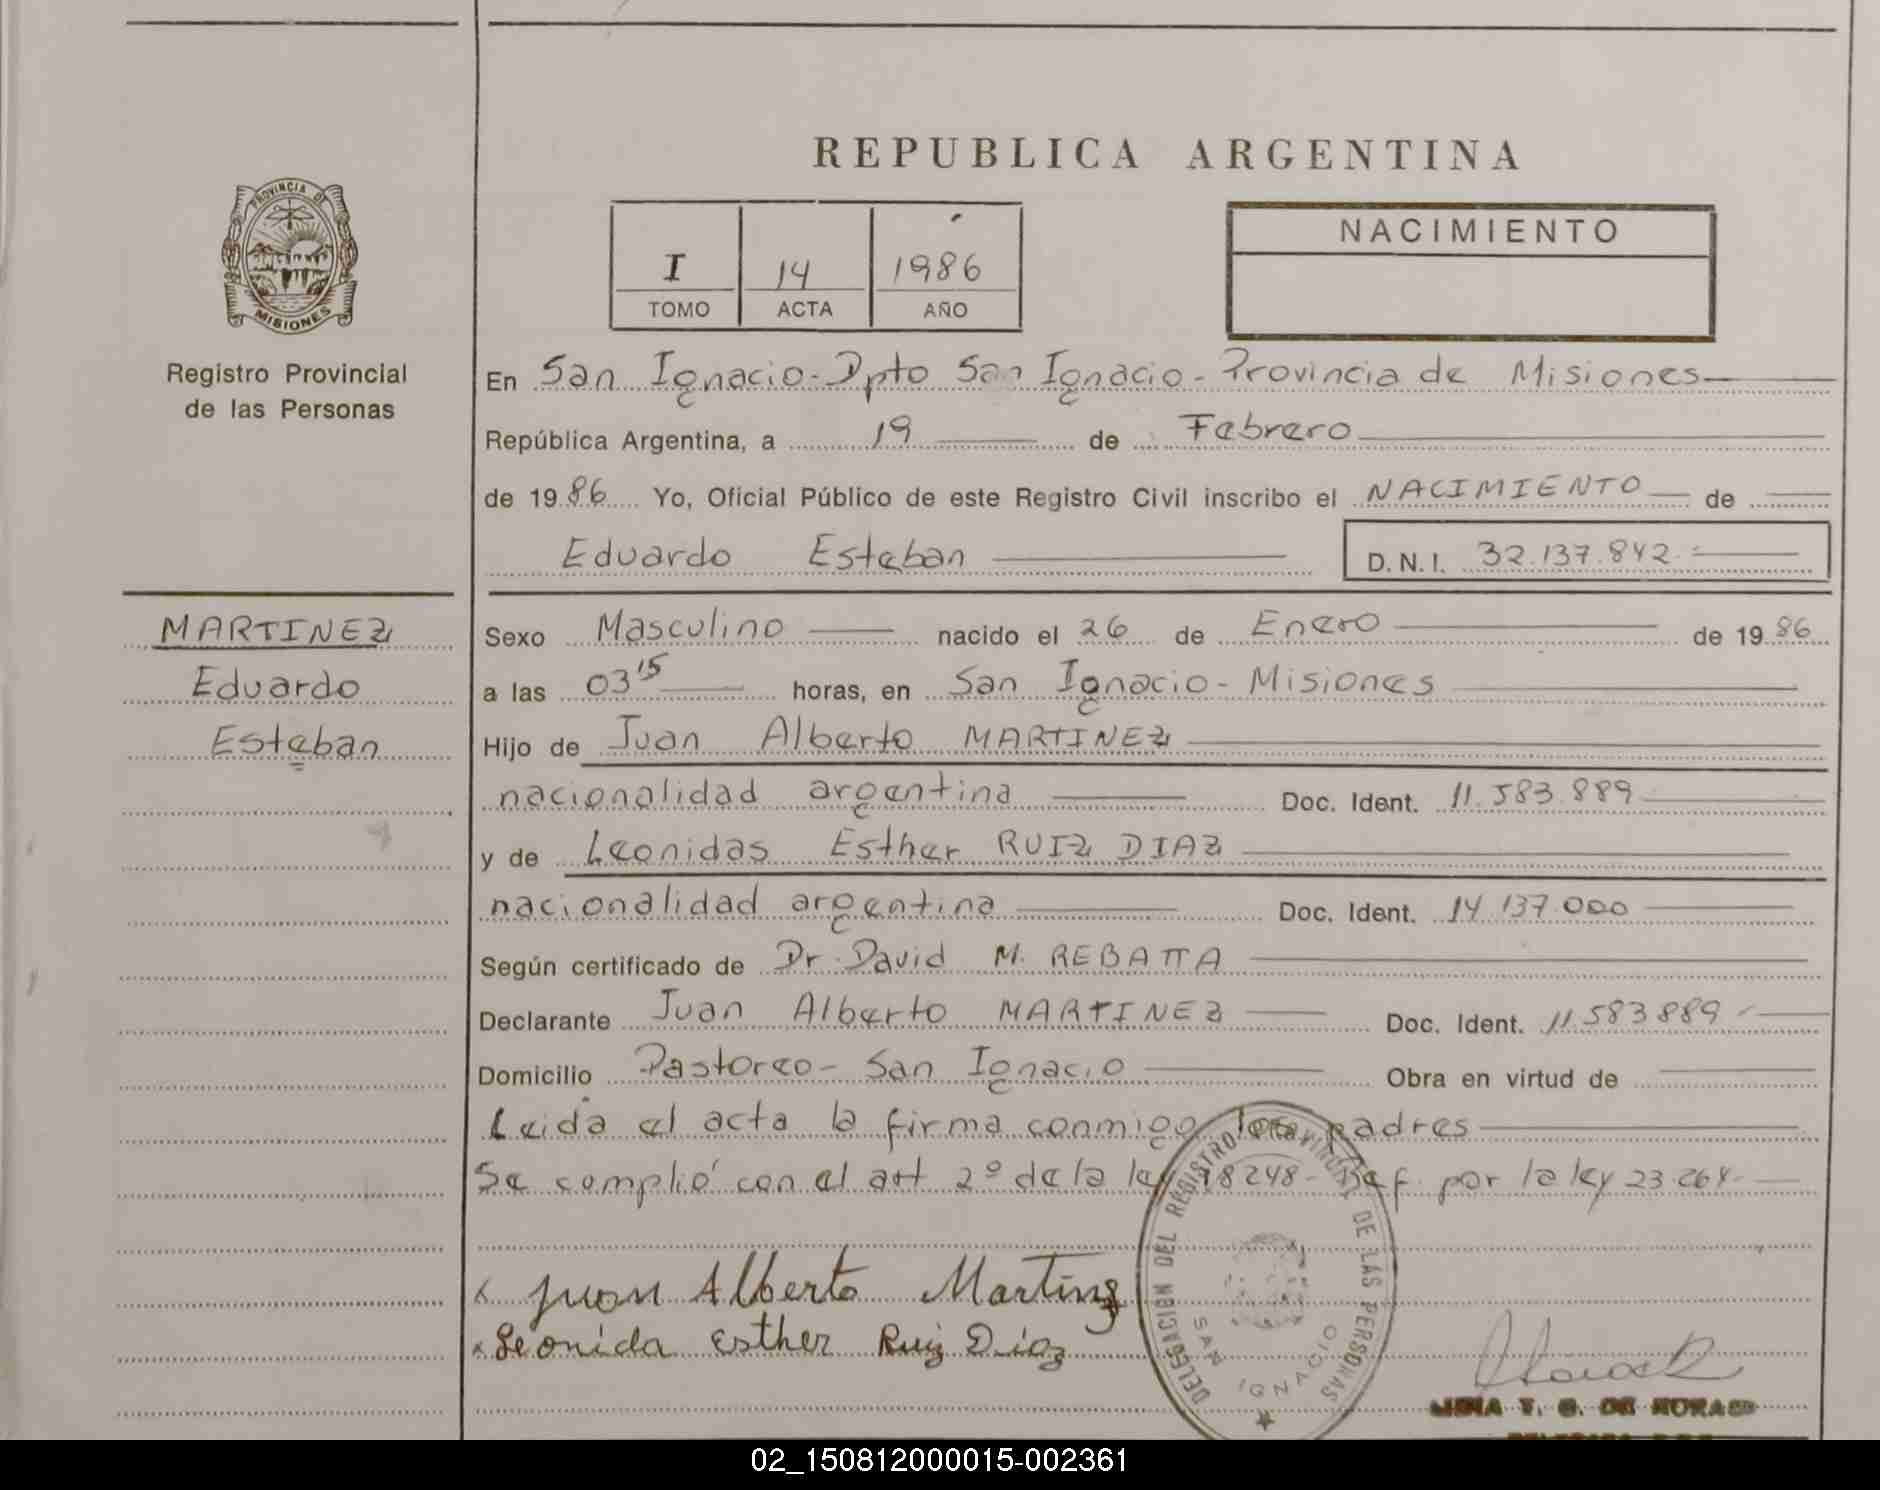 REPUBLICA ARGENTINA
PROVINCIA DE
MISIONES
Registro Provincial
de las Personas
I 14 1986
TOMO ACTA AÑO
NACIMIENTO
En San Ignacio-Dpto San Ignacio-Provincia de Misiones
República Argentina, a 19 de Febrero
de 1986 Yo, Oficial Público de este Registro Civil inscribo el NACIMIENTO de
Eduardo Esteban D.N.I. 32.137.842.-
MARTINEZ
Eduardo
Esteban
Sexo Masculino nacido el 26 de Enero de 1986
a las 03 15 horas, en San Ignacio-Misiones
Hijo de Juan Alberto MARTINEZ
nacionalidad argentina Doc. Ident. 11.583.889
y de Leonidas Esther RUIZ DIAZ
nacionalidad argentina Doc. Ident. 14.137.000
Según certificado de Dr. David M. REBATTA
Declarante Juan Alberto MARTINEZ Doc. Ident. 11.583.889.-
Domicilio Pastoreo-San Ignacio Obra en virtud de
Leida el acta la firma conmigo los padres
Se complió con el art 2º de la ley 18248- por la ley 23.264.-
x Juan Alberto Martinz
x Leonida Esther Ruiz Diaz
DELEGACION DEL REGISTRO PROVINCIAL DE LAS PERSONAS
SAN IGNACIO
T. G. DE
02_150812000015-002361